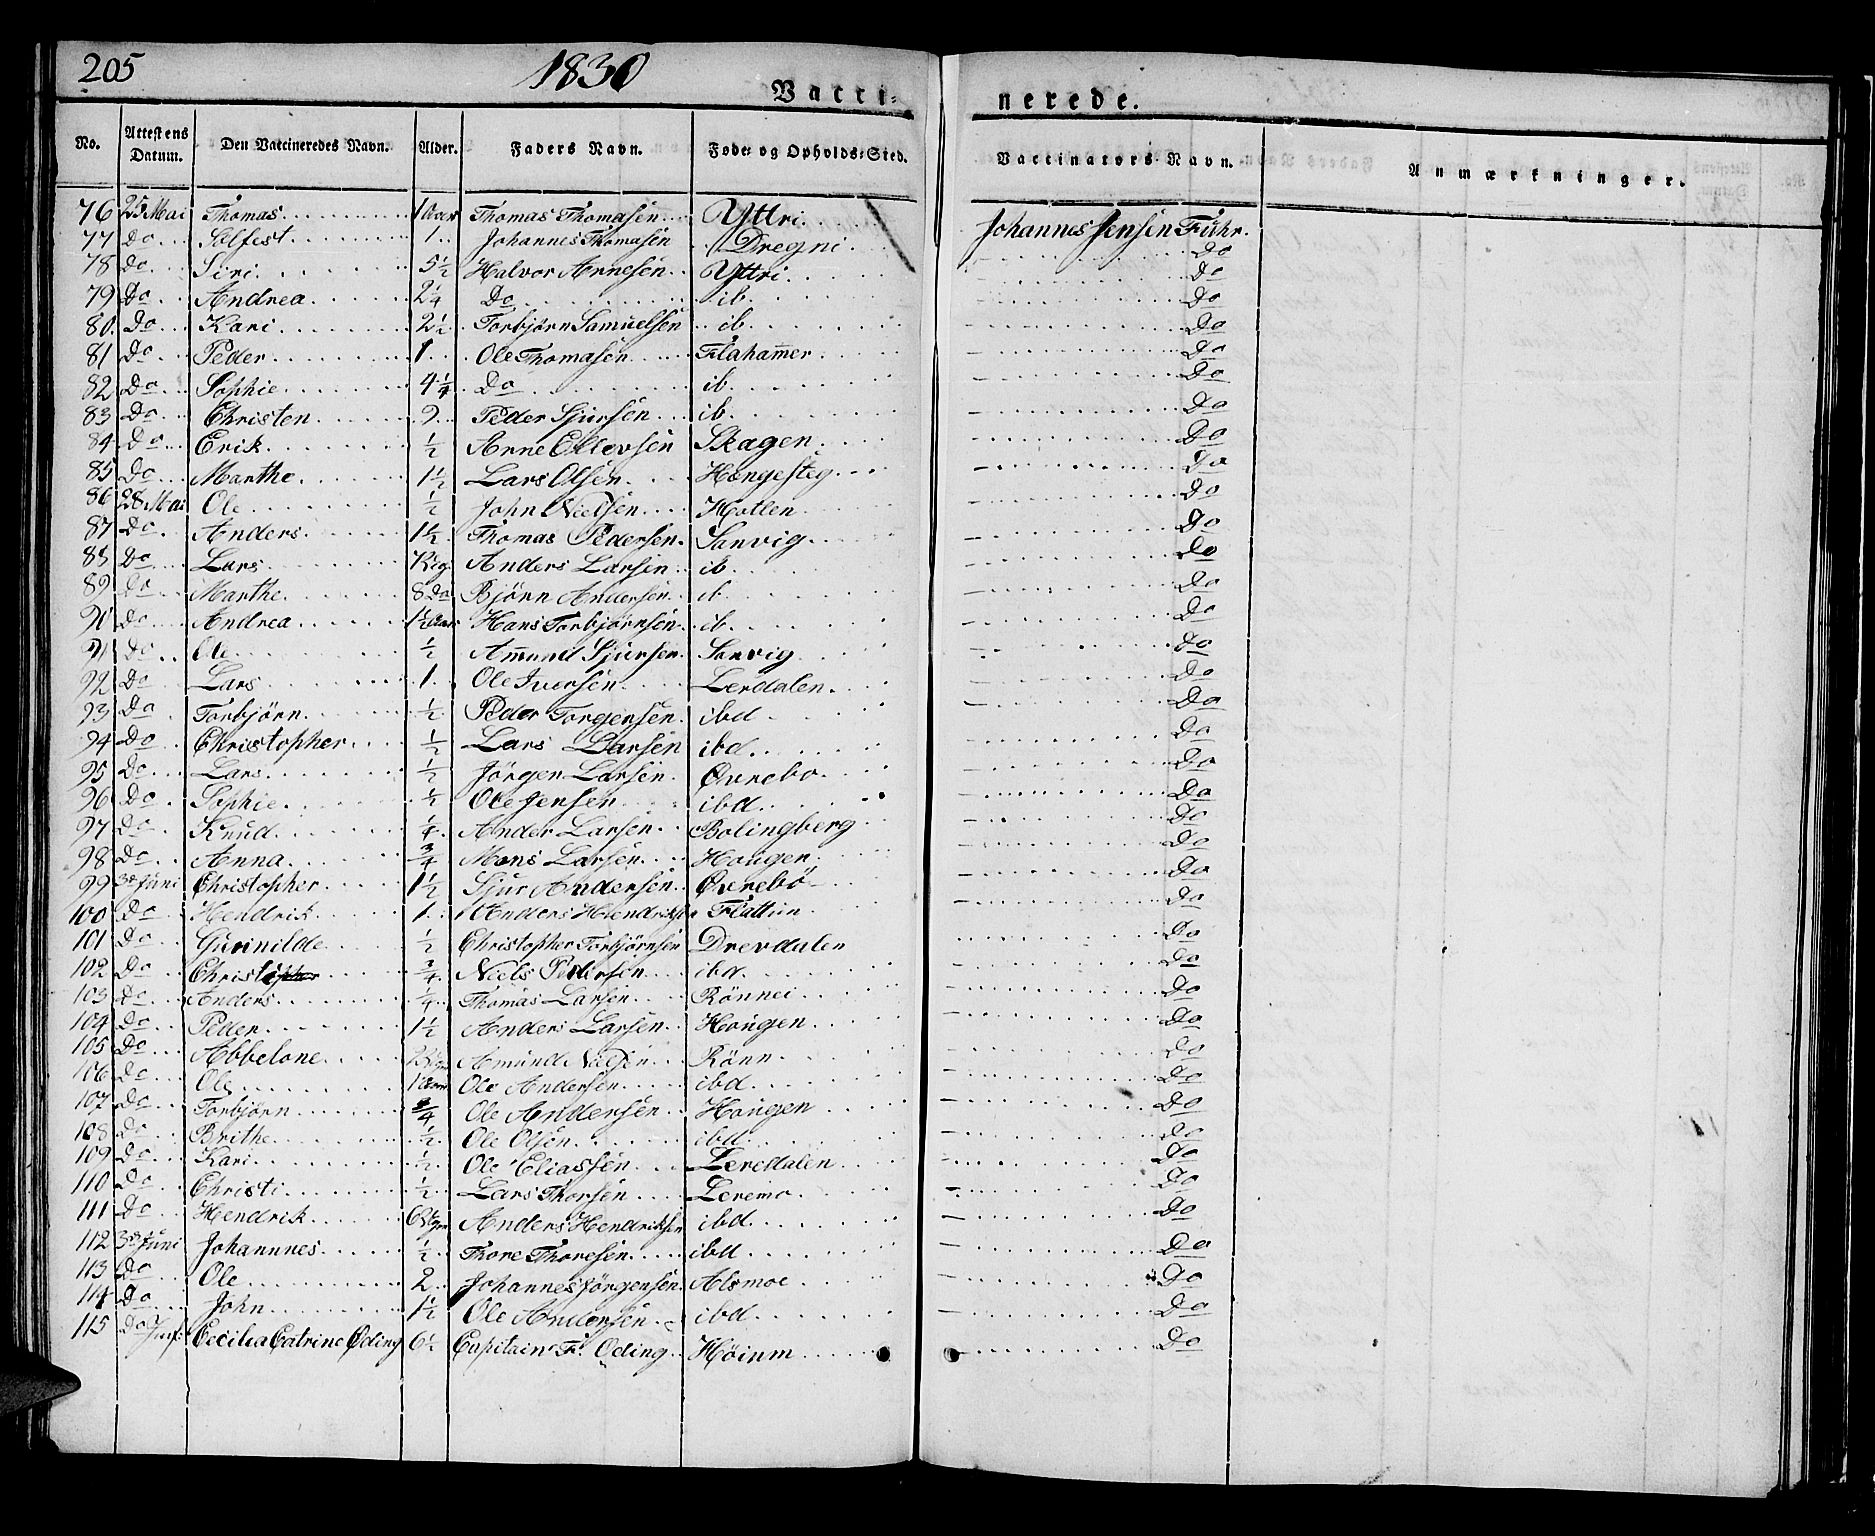 205 1830 Vacci- nerede.
No. Attestens Datum. Den Vaccineredes Navn. Alder. Faders Navn. Føde- og Opholds-Sted. Vaccinators Navn. Anmærkninger.
76 25 Mai Thomas 1 Aar Thomas Thomasen Yttri Johannes Jensen Fuhr.
77 Do Solfest 1 Johannes Thomasen Dregni Do
78 Do Siri 5 1/2 Halvor Arnesen Yttri Do
79 Do Andrea 2 1/4 Do ib Do
80 Do Kari 2 1/2 Torbjörn Samuelsen ib Do
81 Do Peder 1 Ole Thomasen Flahamer Do
82 Do Sophie 4 1/4 Do ib Do
83 Do Christen 2 Peder Sjursen ib Do
84 Do Erik 1/2 Arne Ellevsen Skagen Do
85 Do Marthe 1 1/2 Lars Olsen Hongesteg Do
86 28 Mai Ole 1/2 John Nielsen Hotlen Do
87 Do Anders 1 1/2 Thomas Pedersen Sanvig Do
88 Do Lars Anders Larsen ib Do
89 Do Marthe 8 Do Björn Andersen ib Do
90 Do Andrea 1 1/2 Aar Hans Torbjörnsen ib Do
91 Do Ole 1/2 Amund Sjursen Sanvig Do
92 Do Lars 1 Ole Iversen Lerdalen Do
93 Do Torbjörn 1/2 Peder Torgersen ibd Do
94 Do Christopher 1/2 Lars Larsen ibd Do
95 Do Lars 1/2 Jörgen Larsen Øvrebo Do
96 Do Sophie 1/2 Ole Jensen ibd Do
97 Do Knud 1/4 Ander Larsen Bolingberg Do
98 Do Anna 3/4 Mons Larsen Hougen Do
99 3de Juni Christopher 1 1/2 Sjur Andersen Øvrebö Do
100 Do Hendrik 1 Anders Hendriksen Flattun Do
101 Do Gunnilde 1/2 Christopher Torbjörnsen Drevdalen Do
102 Do Christopher 3/4 Niels Pedersen ibd Do
103 Do Anders 1/4 Thomas Larsen Rönnei Do
104 Do Peder 1 1/2 Anders Larsen Hougen Do
105 Do Abbelone Amund Nielsen Rönn Do
106 Do Ole 1 Aar Ole Andersen ibd Do
107 Do Torbjörn 3/4 Ole Andersen Hougen Do
108 Do Brithe 1/2 Ole Olsen ibd Do
109 Do Kari 1/2 Ole Eliassen Leredalen Do
110 Do Christi 1/2 Lars Thorsen Leremo Do
111 Do Hendrik Anders Hendriksen ibd Do
112 3de Juni Johannnes 1/2 Thore Thoresen ibd Do
113 Do Ole 2 Johannes Jörgensen Alsmoe Do
114 Do John 1 1/2 Ole Andersen ibd Do
115 Do Cecilia Catrine Øding 6 1/2 Capitain F. Oding Høium Do